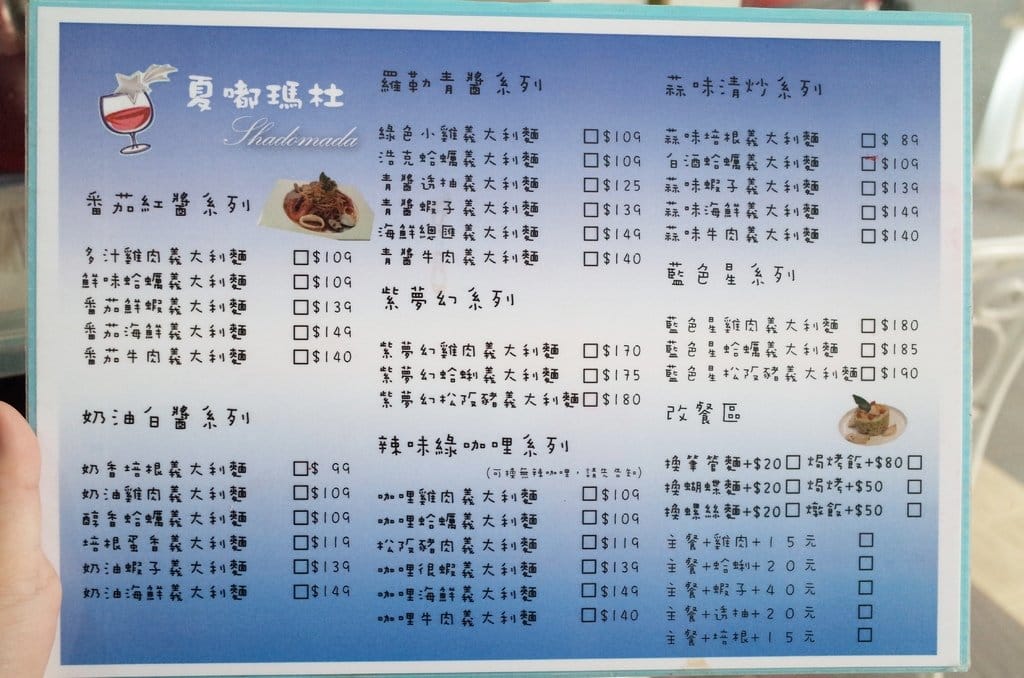 夏嘟瑪杜
Shadomada
番茄紅醬系列
多汁雞肉義大利麵 □$109
鮮味蛤蠣義大利麵 □$109
番茄鮮蝦義大利麵 □$139
番茄海鮮義大利麵 □$149
番茄牛肉義大利麵 □$140
奶油白醬系列
奶香培根義大利麵 □$ 99
奶油雞肉義大利麵 □$109
醇香蛤蠣義大利麵 □$109
培根蛋香義大利麵 □$119
奶油蝦子義大利麵 □$139
奶油海鮮義大利麵 □$149
羅勒青醬系列
綠色小雞義大利麵 □$109
浩克蛤蠣義大利麵 □$109
青醬透抽義大利麵 □$125
青醬蝦子義大利麵 □$139
海鮮總匯義大利麵 □$149
青醬牛肉義大利麵 □$140
紫夢幻系列
紫夢幻雞肉義大利麵 □$170
紫夢幻蛤蜊義大利麵 □$175
紫夢幻松阪豬義大利麵 □$180
辣味綠咖哩系列
(可換無辣咖哩，請先告知)
咖哩雞肉義大利麵 □$109
咖哩蛤蠣義大利麵 □$109
松阪豬肉義大利麵 □$119
咖哩很蝦義大利麵 □$139
咖哩海鮮義大利麵 □$149
咖哩牛肉義大利麵 □$140
蒜味清炒系列
蒜味培根義大利麵 □$ 89
白酒蛤蠣義大利麵 □$109
蒜味蝦子義大利麵 □$139
蒜味海鮮義大利麵 □$149
蒜味牛肉義大利麵 □$140
藍色星系列
藍色星雞肉義大利麵 □$180
藍色星蛤蠣義大利麵 □$185
藍色星松阪豬義大利麵 □$190
改餐區
換筆管麵+$20 □ 焗烤飯+$80 □
換蝴蝶麵+$20 □ 焗烤+$50 □
換螺絲麵+$20 □ 燉飯+$50 □
主餐+雞肉+15元 □
主餐+蛤蜊+20元 □
主餐+蝦子+40元 □
主餐+透抽+20元 □
主餐+培根+15元 □